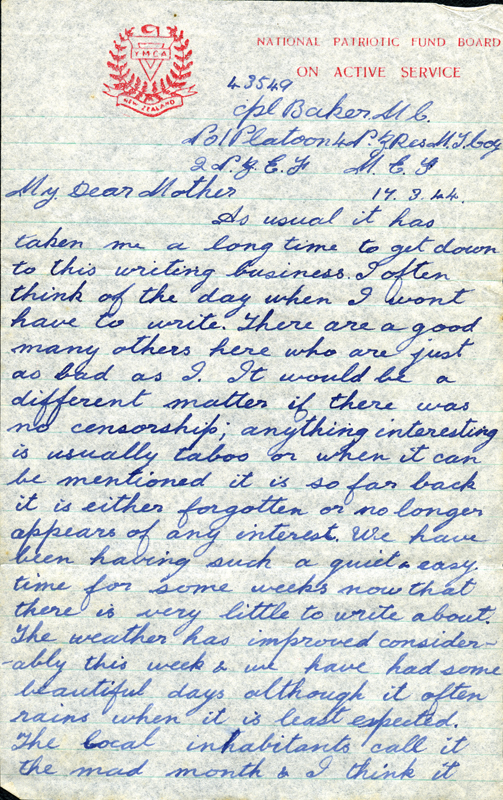 YMCA
NEW ZEALAND
NATIONAL PATRIOTIC FUND BOARD
ON ACTIVE SERVICE
43549
Cpl Baker M.C.
No 1 Platoon 4 N.Z Res M.T. Coy
2 N.Z E.F M.E.F
My Dear Mother 17.3.44.
As usual it has
taken me a long time to get down
to this writing business. I often
think of the day when I wont
have to write. There are a good
many others here who are just
as bad as I. It would be a
different matter if there was
no censorship; anything interesting
is usually taboo or when it can
be mentioned it is so far back
it is either forgotten or no longer
appears of any interest. We have
been having such a quiet & easy
time for some weeks now that
there is very little to write about.
The weather has improved consider-
-ably this week & we have had some
beautiful days although it often
rains when it is least expected.
The local inhabitants call it
the mad month & I think it